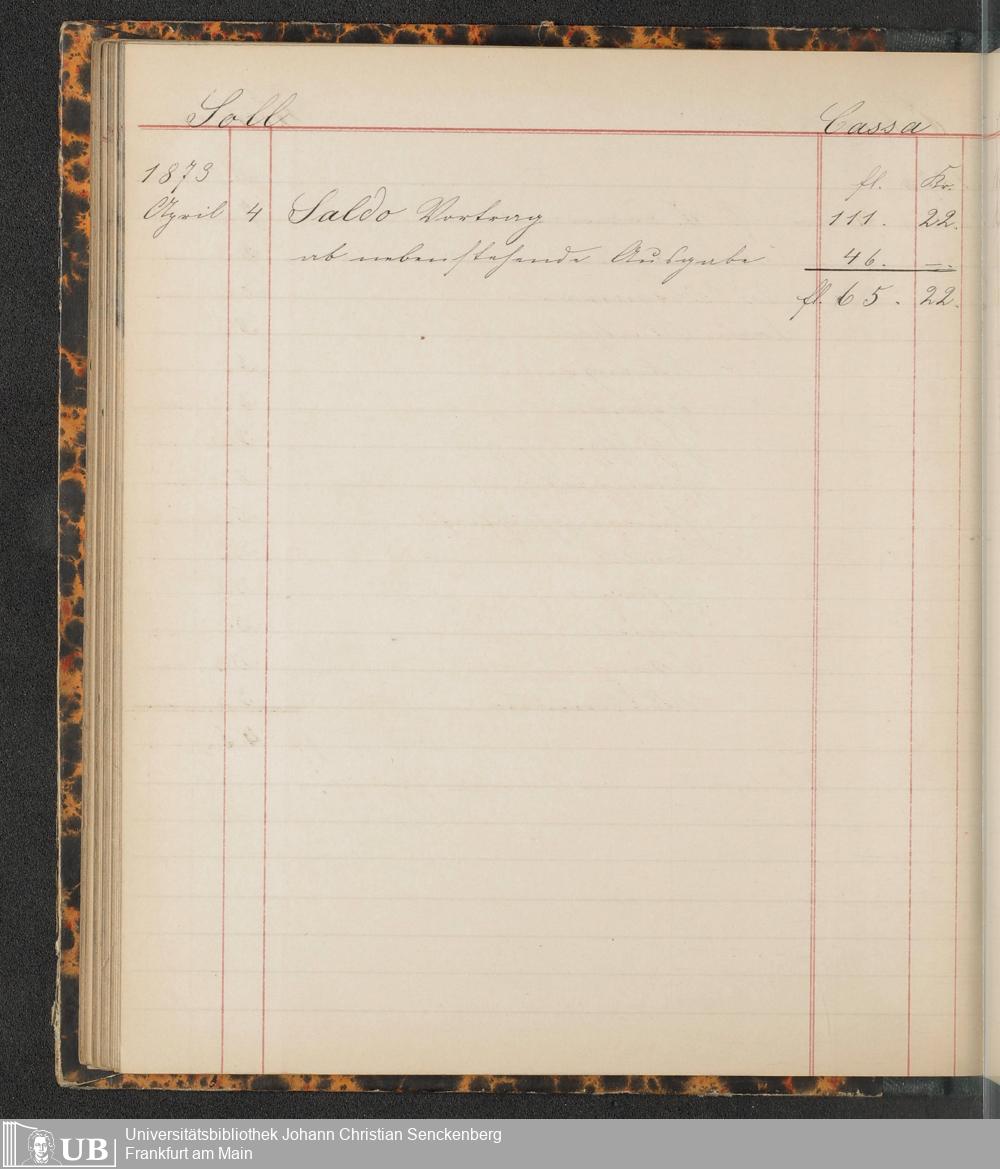 Soll Cassa
1873 fl. Kr.
April 4 Saldo Vortrag 111. 22.
ab nebenstehende Ausgabe 46. —.
fl. 65. 22.
UB Universitätsbibliothek Johann Christian Senckenberg
Frankfurt am Main